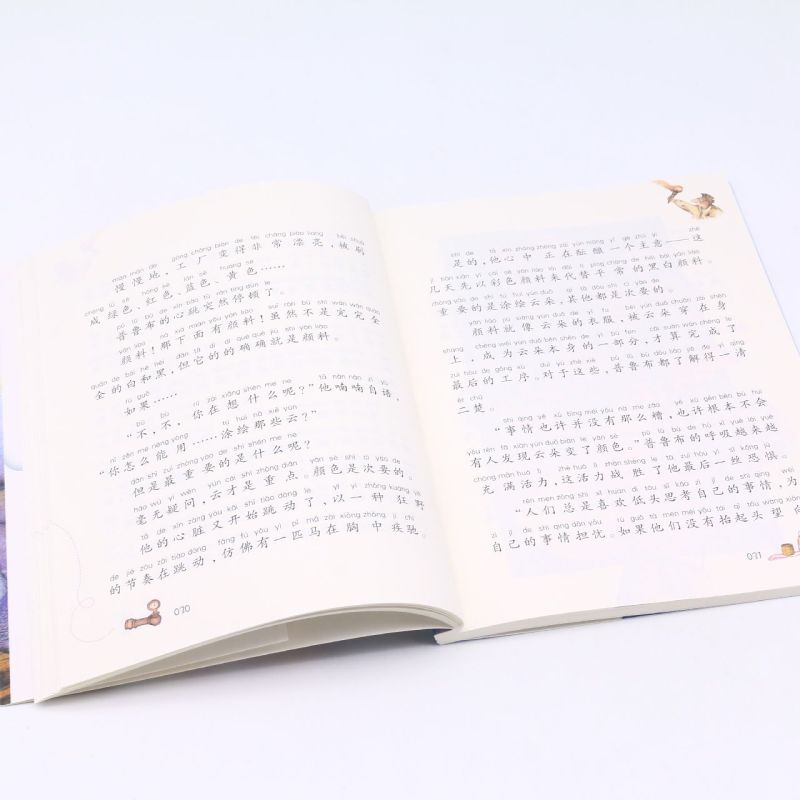 màn màn de gōng chǎng biàn de fēi cháng piào liang bèi shuā
慢慢地，工厂变得非常漂亮，被刷
chéng lǜ sè hóng sè lán sè huáng sè
成绿色、红色、蓝色、黄色……
pǔ lǔ bù de xīn tiào tū rán tíng dùn le
普鲁布的心跳突然停顿了。
yán liào nà xià miàn yǒu yán liào suī rán bú shì wán wán quán
颜料！那下面有颜料！虽然不是完完全
quán de bái hé hēi dàn tā dí dí què què jiù shì yán liào
全的白和黑，但它的的确确就是颜料。
rú guǒ
如果……
bù bù nǐ zài xiǎng shén me ne tā nán nán zì yǔ
“不，不，你在想什么呢？”他喃喃自语，
nǐ zěn me néng yòng tú huì nà xiē yún
“你怎么能用……涂绘那些云？
dàn shì zuì zhòng yào de shì shén me ne
但是最重要的是什么呢？
háo wú yí wèn yún cái shì zhòng diǎn yán sè shì cì yào de
毫无疑问，云才是重点。颜色是次要的。
tā de xīn zàng yòu kāi shǐ tiào dòng le yǐ yì zhǒng kuáng yě
他的心脏又开始跳动了、以一种狂野
de jié zòu zài tiào dòng fǎng fú yǒu yì pǐ mǎ zài xiōng zhōng jí chí
的节奏在跳动，仿佛有一匹马在胸中疾驰。
070
shì de tā xīn zhōng zhèng zài yùn niàng yí gè zhǔ yi zhè
是的，他心中正在酝酿一个主意——这
jǐ tiān xiān yǐ cǎi sè yán liào lái dài tì píng cháng de hēi bái yán liào
几天先以彩色颜料来代替平常的黑白颜料。
zhòng yào de shì tú huì yún duǒ qí tā dōu shì cì yào de
重要的是涂绘云朵，其他都是次要的。
yán liào jiù xiàng yún duǒ de yī fu bèi yún duǒ chuān zài shēn
颜料就像云朵的衣服，被云朵穿在身
shang chéng wéi yún duǒ běn shēn de yí bù fen cái suàn wán chéng le
上，成为云朵本身的一部分，才算完成了
zuì hòu de gōng xù duì yú zhè xiē pǔ lǔ bù dōu liǎo jiě de yì qīng
最后的工序。对于这些，普鲁布都了解得一清
èr chǔ
二楚。
shì qing yě xǔ bìng méi yǒu nà me zāo yě xǔ gēn běn bú huì
“事情也许并没有那么槽，也许根本不会
yǒu rén fā xiàn yún duǒ biàn le yán sè pǔ lǔ bù de hū xī yuè lái yuè
有人发现云朵变了颜色。”普鲁布的呼吸越来越
chōng mǎn huó lì zhè huó lì zhàn shèng le tā zuì hòu yì sī kǒng jù
充满活力，这活力战胜了他最后一丝恐惧。
rén men zǒng shì xǐ huan dī tóu sī kǎo zì jǐ de shì qing wèi
“人们总是喜欢低头思考自己的事情，为
zì jǐ de shì qing dān yōu rú guǒ tā men méi yǒu tái qǐ tóu wàng xiàng
自己的事情担忧。如果他们没有抬起头望向
071